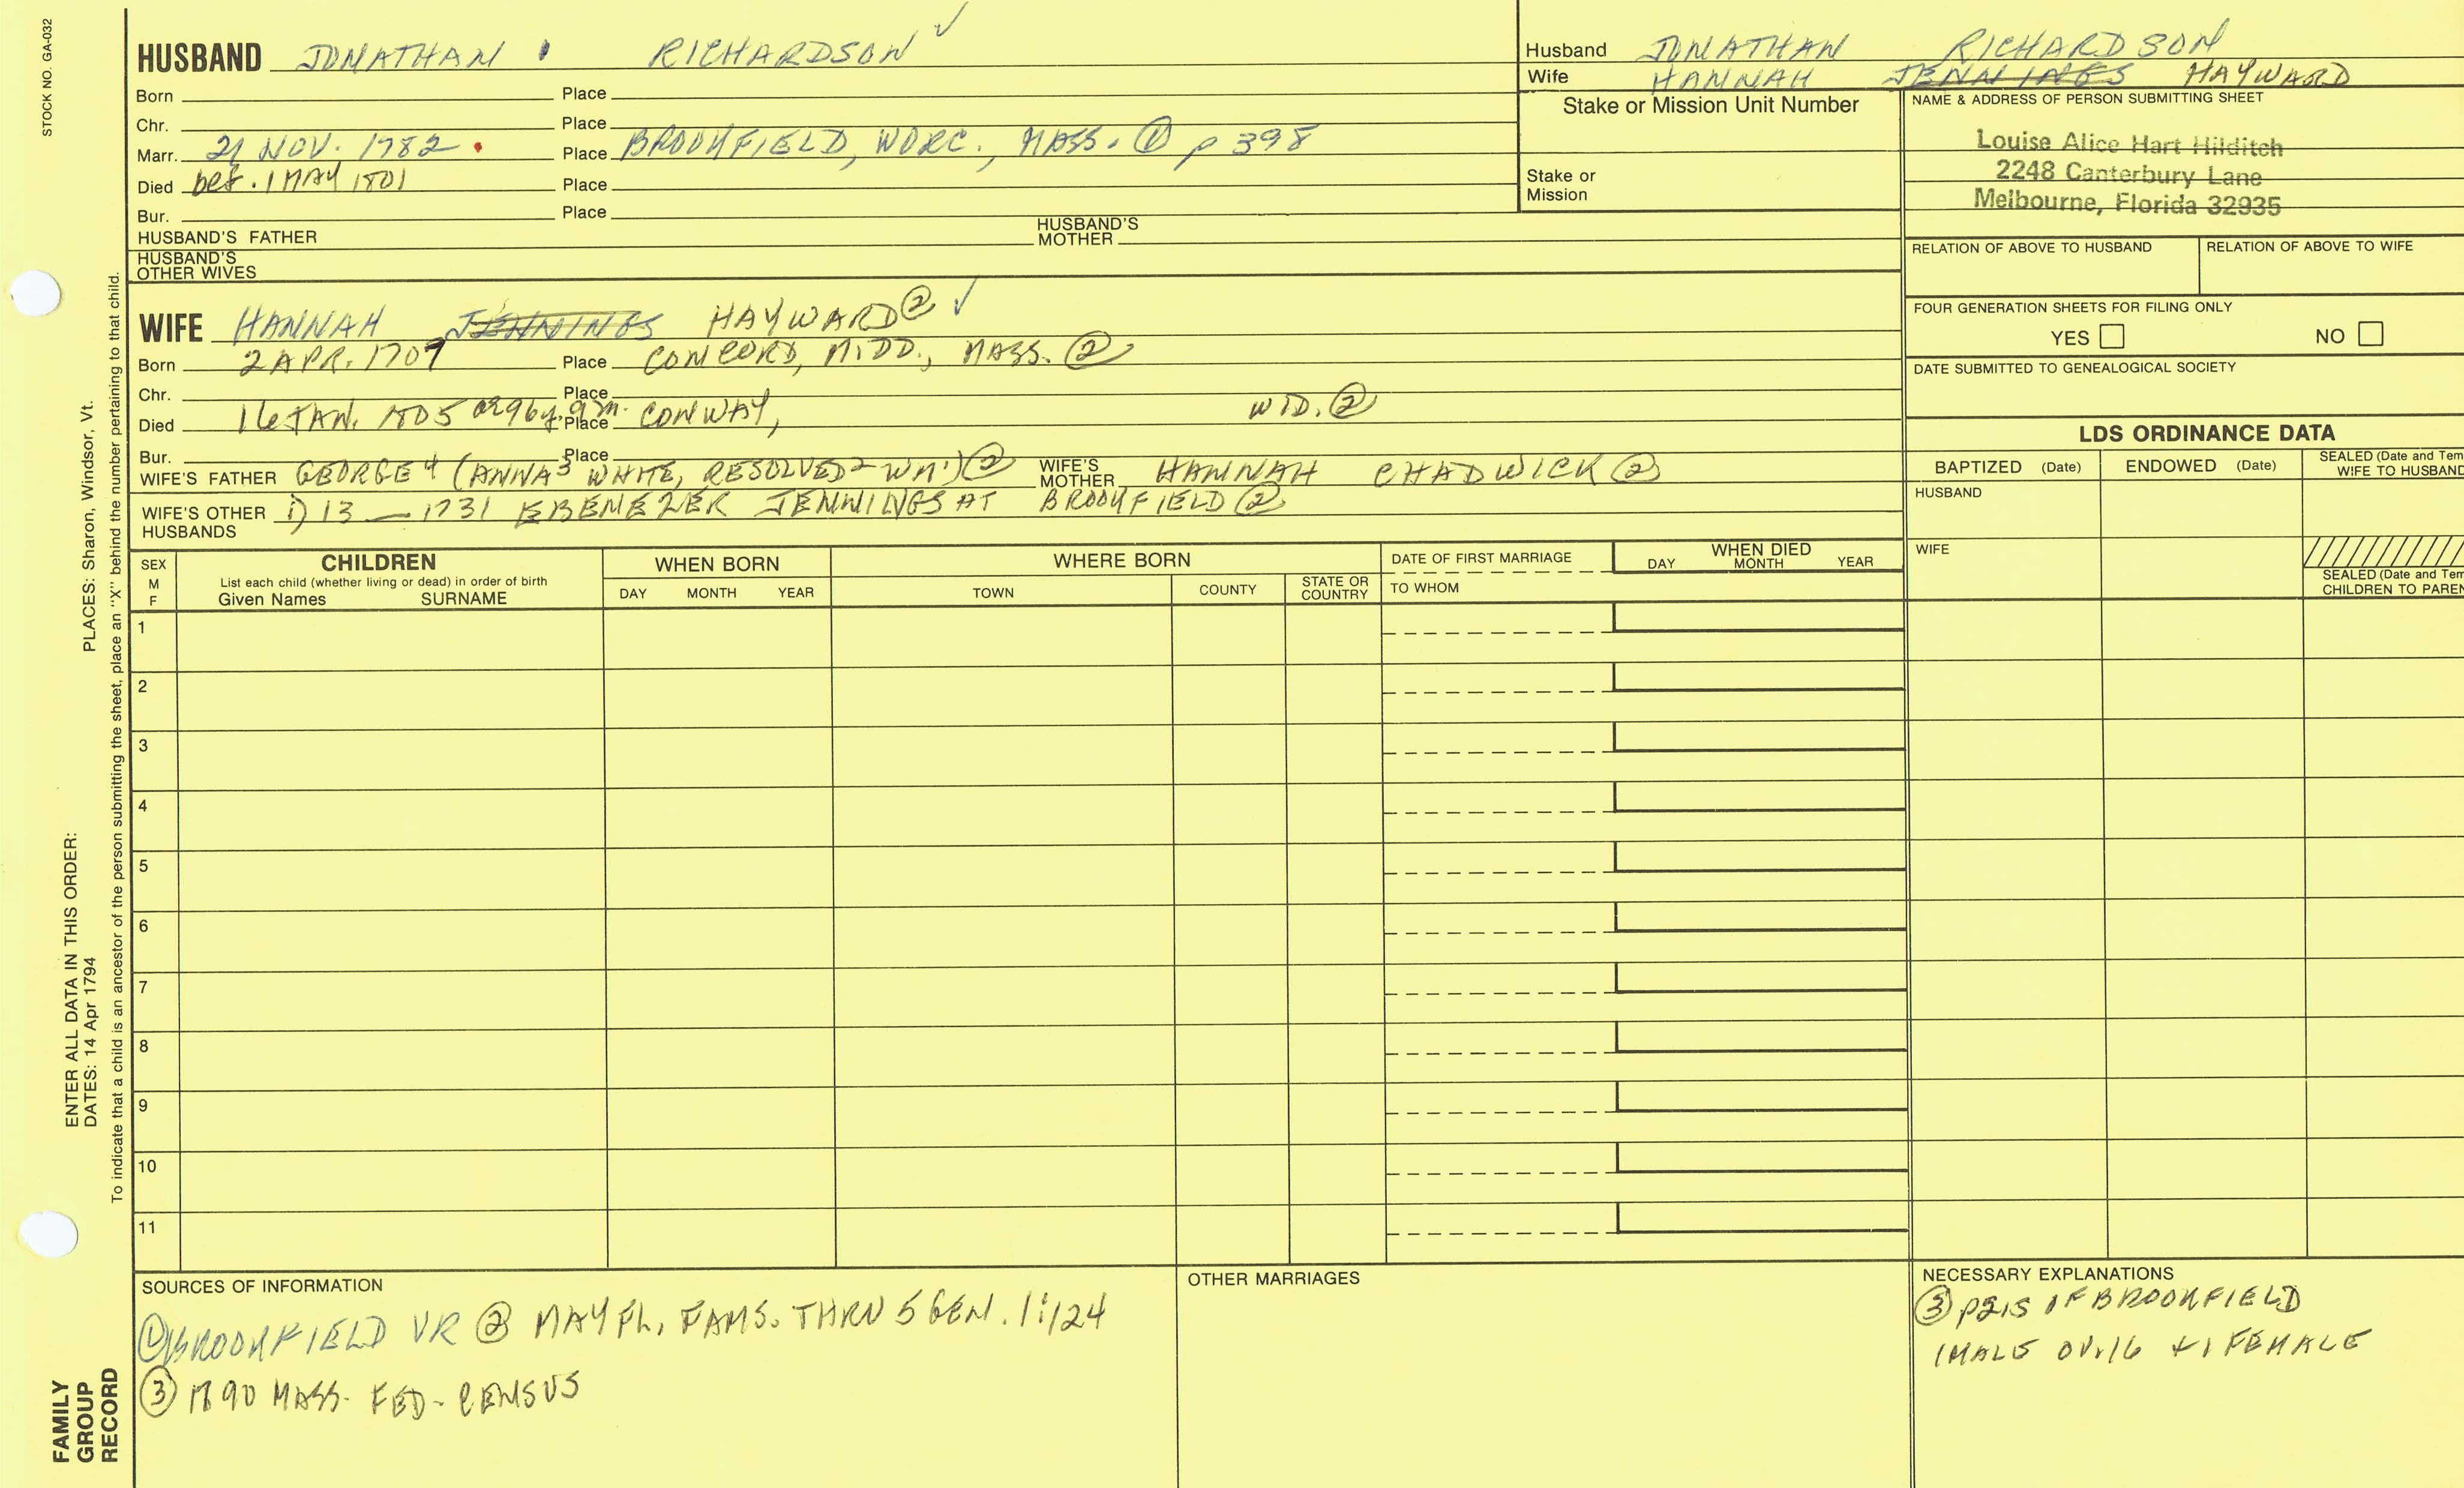 STOCK NO. GA-032
HUSBAND JONATHAN RICHARDSON ✓
Born Place
Chr. Place
Marr. 21 NOV. 1782 Place BROOKFIELD, WORC., MASS. ① p 398
Died bef. 1 MAY 1801 Place
Bur. Place
HUSBAND'S FATHER HUSBAND'S MOTHER
HUSBAND'S OTHER WIVES
WIFE HANNAH JENNINGS HAYWARD ② ✓
Born 2 APR. 1709 Place CONCORD, MIDD., MASS. ②
Chr. Place
Died 16 JAN. 1805 Place CONWAY, WID. ②
Bur. Place
WIFE'S FATHER GEORGE⁴ (ANNA³ WHITE, RESOLVED² WM¹) ② WIFE'S MOTHER HANNAH CHADWICK ②
WIFE'S OTHER HUSBANDS 1) 13 — 1731 EBENEZER JENNINGS AT BROOKFIELD ②
Husband JONATHAN RICHARDSON
Wife HANNAH JENNINGS HAYWARD
Stake or Mission Unit Number
Stake or
Mission
NAME & ADDRESS OF PERSON SUBMITTING SHEET
Louise Alice Hart Hilditch
2248 Canterbury Lane
Melbourne, Florida 32935
RELATION OF ABOVE TO HUSBAND RELATION OF ABOVE TO WIFE
FOUR GENERATION SHEETS FOR FILING ONLY
YES NO
DATE SUBMITTED TO GENEALOGICAL SOCIETY
LDS ORDINANCE DATA
BAPTIZED (Date) ENDOWED (Date) SEALED (Date and Tem
WIFE TO HUSBAND
HUSBAND
WIFE
SEALED (Date and Tem
CHILDREN TO PAREN
SEX
M
F
CHILDREN
List each child (whether living or dead) in order of birth
Given Names SURNAME
WHEN BORN
DAY MONTH YEAR
WHERE BORN
TOWN COUNTY STATE OR COUNTRY
DATE OF FIRST MARRIAGE
TO WHOM
WHEN DIED
DAY MONTH YEAR
1
2
3
4
5
6
7
8
9
10
11
SOURCES OF INFORMATION
① BROOKFIELD VR ② MAYFL. FAMS. THRU 5 GEN. 11/24
③ 1790 MASS. FED. CENSUS
OTHER MARRIAGES
NECESSARY EXPLANATIONS
③ p215 OF BROOKFIELD
1 MALE OV. 16 + 1 FEMALE
PLACES: Sharon, Windsor, Vt.
ENTER ALL DATA IN THIS ORDER:
DATES: 14 Apr 1794
To indicate that a child is an ancestor of the person submitting the sheet, place an "X" behind the number pertaining to that child.
FAMILY
GROUP
RECORD